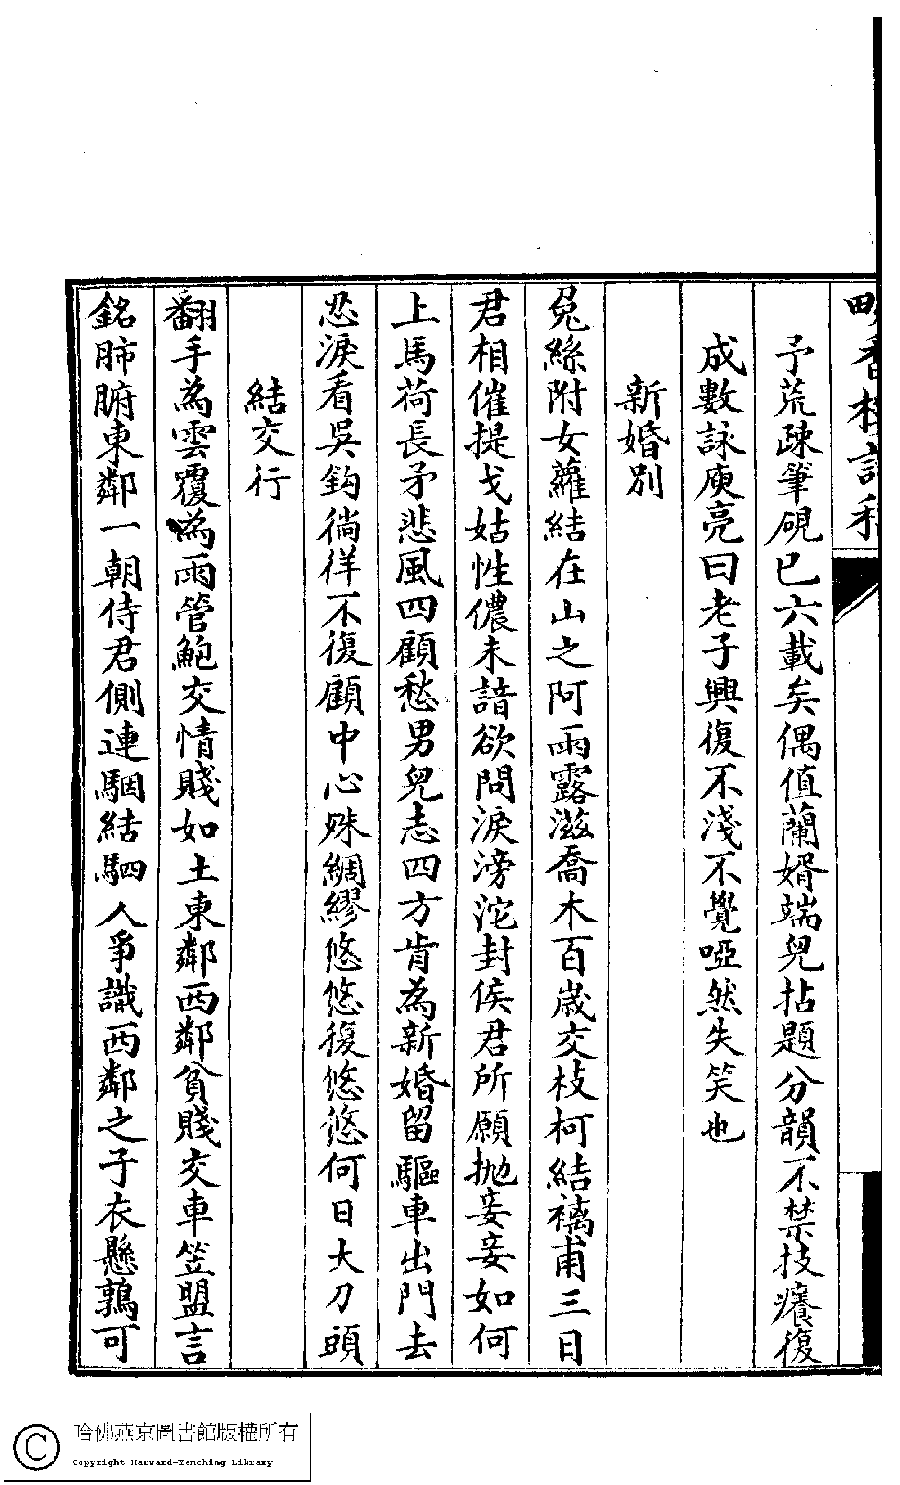 予荒疎筆硯已六載矣偶值蘭婿端兒拈題分韻不禁技癢復
成數詠庾亮曰老子興復不淺不覺啞然失笑也
新婚別
兔絲附女蘿結在山之阿雨露滋喬木百歲交枝柯結褵甫三日
君相催提戈姑性儂未諳欲問淚滂沱封侯君所願拋妾妾如何
上馬荷長矛悲風四顧愁男兒志四方肯為新婚留驅車出門去
忍淚看吳鈎徜徉不復顧中心殊綢繆悠悠復悠悠何日大刀頭
結交行
翻手為雲覆為雨管鮑交情賤如土東鄰西鄰貧賤交車笠盟言
銘肺腑東鄰一朝侍君側連駰結駟人爭識西鄰之子衣懸鶉可
哈佛燕京圖書館版權所有
Copyright Harvard-Yenching Library